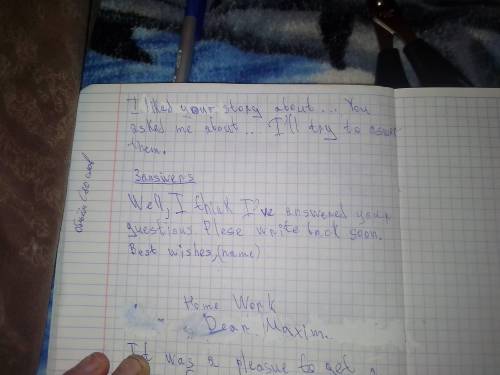 I liked your story about... You
asked me about.. I'll try to
them.
3answers
Well, I think I've answered your
questions Plese write back soon.
Best wishes,(name)
Home Work
Dear Maxim.
It was a pleasue to get a